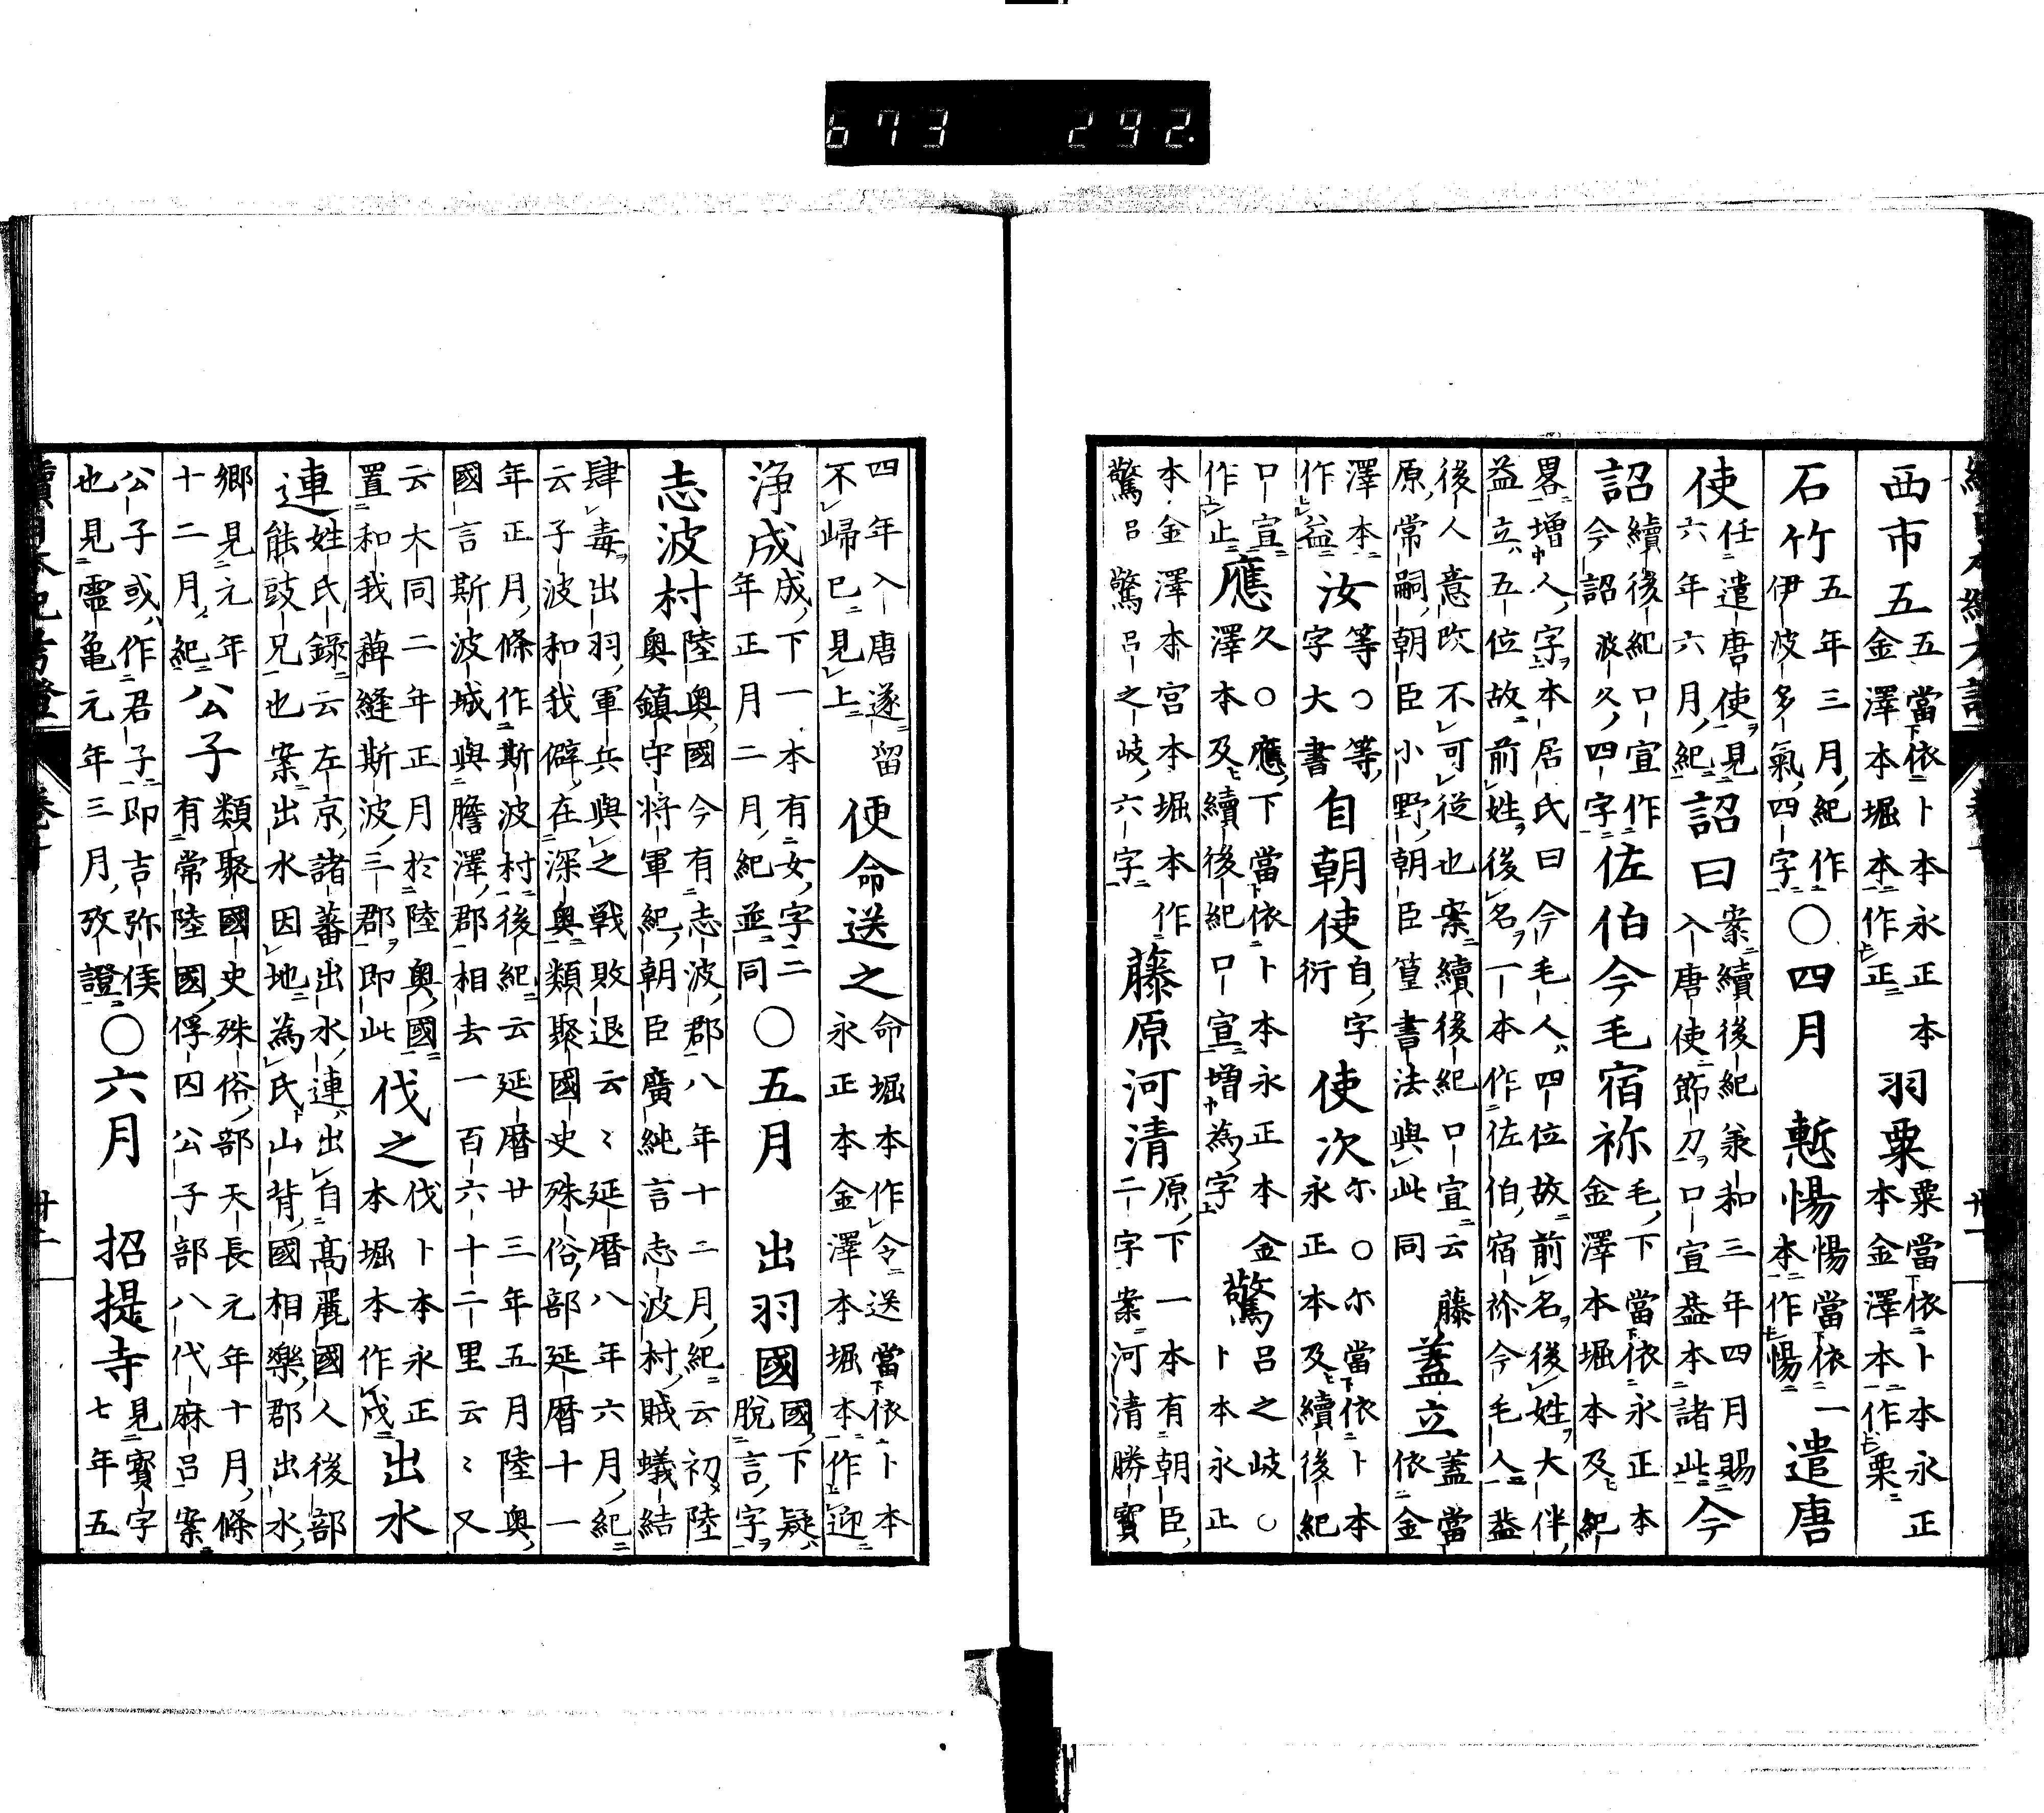 西市五五當依卜本永正本金澤本堀本作正羽粟粟當依卜本永正本金澤本作栗
石竹五年三月紀作伊波多氣四字○四月慙惕惕當依一本作愓遣唐
使任遣唐使見六年六月紀詔曰案續後紀羕和三年四月賜入唐使節刀口宣盖本諸此今
詔續後紀口宣作今詔波久四字佐伯今毛宿祢毛下當依永正本金澤本堀本及紀
畧增人字本居氏曰今毛人四位故前名後姓大伴益立五位故前姓後名一本作佐伯宿祢今毛人盖
後人意改不可從也案續後紀口宣云藤原常嗣朝臣小野朝臣篁書法與此同蓋立蓋當依金
澤本作益汝等○等字大書自朝使自字衍使次尓○尓當依卜本永正本及續後紀
口宣作止應久○應下當依卜本永正本金澤本及續後紀口宣增為字驚呂之岐○卜本永正
本金澤本宮本堀本作驚呂驚呂之岐六字藤原河清原下一本有朝臣二字案河清勝寳
四年入唐遂留不歸已見上便命送之命堀本作令送當依卜本永正本金澤本堀本作迎
浄成成下一本有女字二年正月二月紀並同○五月出羽國國下疑脫言字
志波村陸奥國今有志波郡八年十二月紀云初陸奥鎮守将軍紀朝臣廣純言志波村賊蟻結
肆毒出羽軍兵與之戦敗退云〻延暦八年六月紀云子波和我僻在深奥類聚國史殊俗部延暦十一
年正月條作斯波村後紀云延暦廿三年五月陸奥國言斯波城與膽澤郡相去一百六十二里云〻又
云大同二年正月於陸奥國置和我薭縫斯波三郡即此伐之伐卜本永正本堀本作戍出水
連姓氏錄云左京諸蕃出水連出自高麗國人後部能豉兄也案出水因地為氏山背國相樂郡出水
鄉見元年十二月紀公子類聚國史殊俗部天長元年十月條有常陸國俘囚公子部八代麻呂案
公子或作君子即吉弥侯也見霊亀元年三月攷證○六月招提寺見寳字七年五